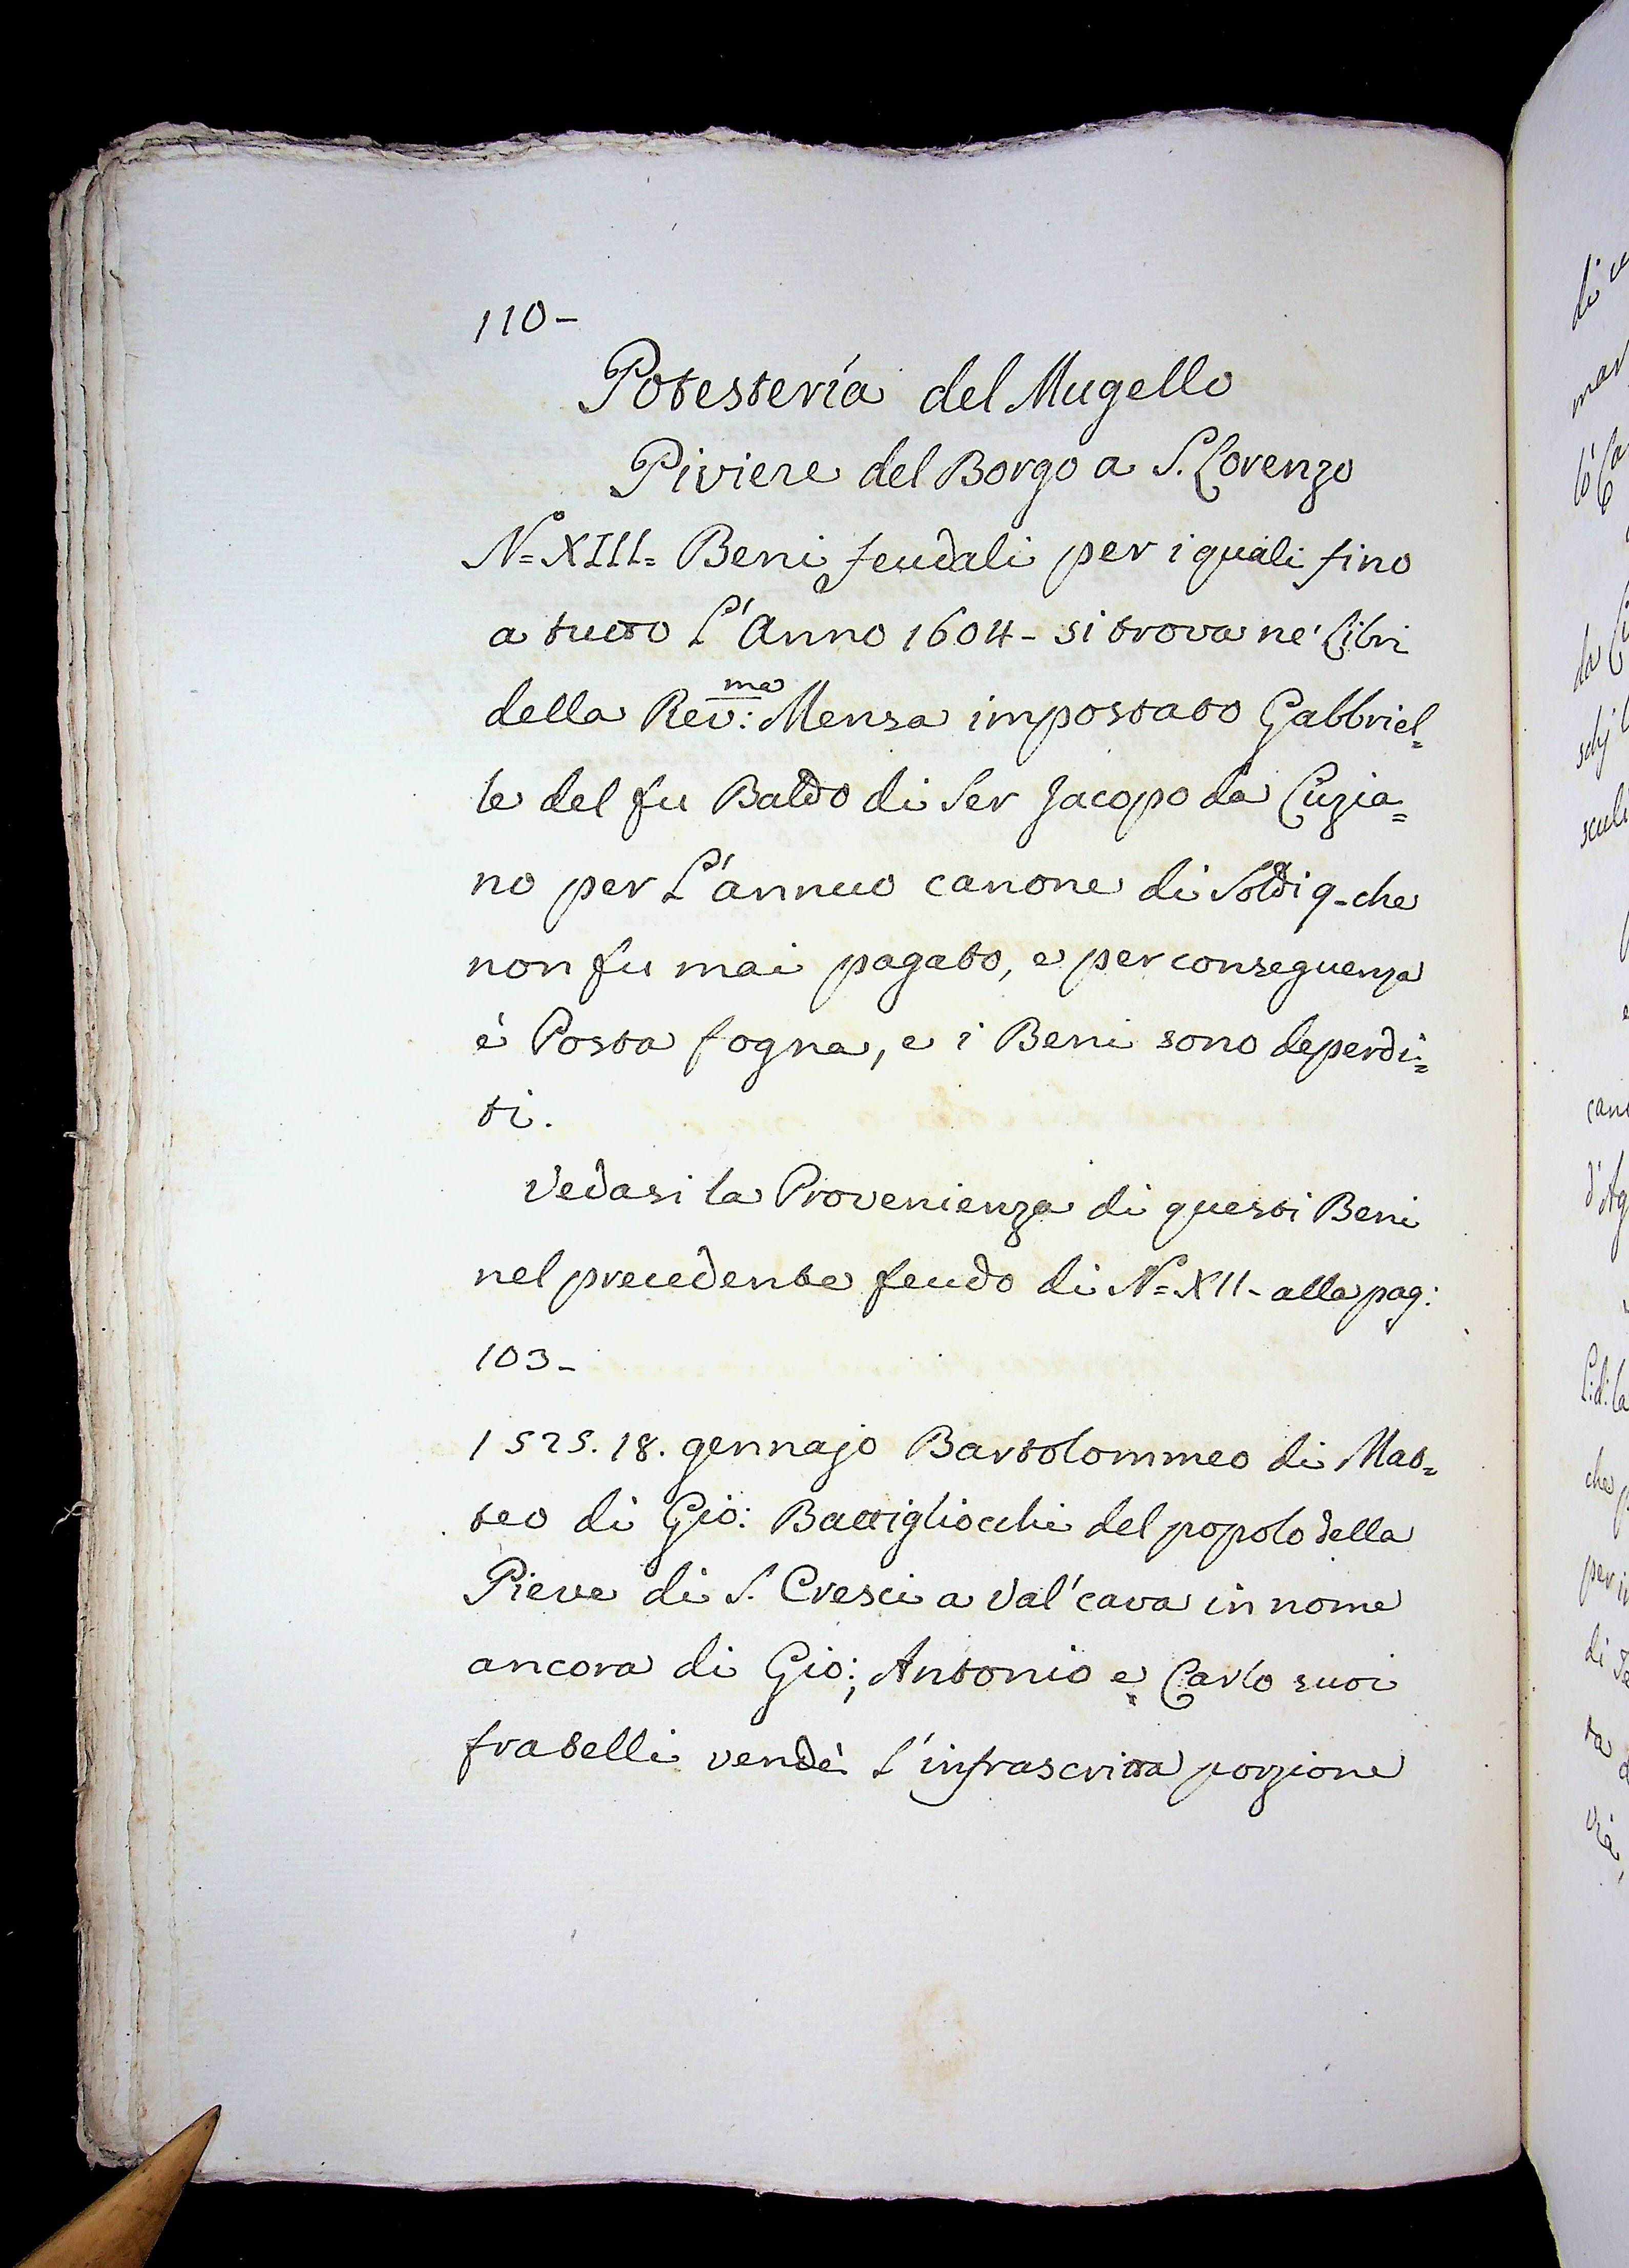 110-
Potestería del Mugello
Piviere del Borgo a S. Lorenzo
N.º XIII = Beni feudali per i quali fino
a tutto l'Anno 1604 - si trova ne' Libri
della Rev:ma Mensa impostato Gabbriel=
le del fu Baldo di Ser Jacopo da Luzia=
no per l'annuo canone di Soldi 9 - che
non fu mai pagato, e per conseguenza
è Posta fogna, e i Beni sono deperdi=
ti.
Vedasi la Provenienza di questi Beni
nel precedente feudo di N.º XII - alla pag:
103-
1525. 18. gennajo Bartolommeo di Mat=
teo di Gio: Battigliocchi del popolo della
Pieve di S. Cresci a Val'cava in nome
ancora di Gio:, Antonio e Carlo suoi
fratelli vendè l'infrascritta porzione